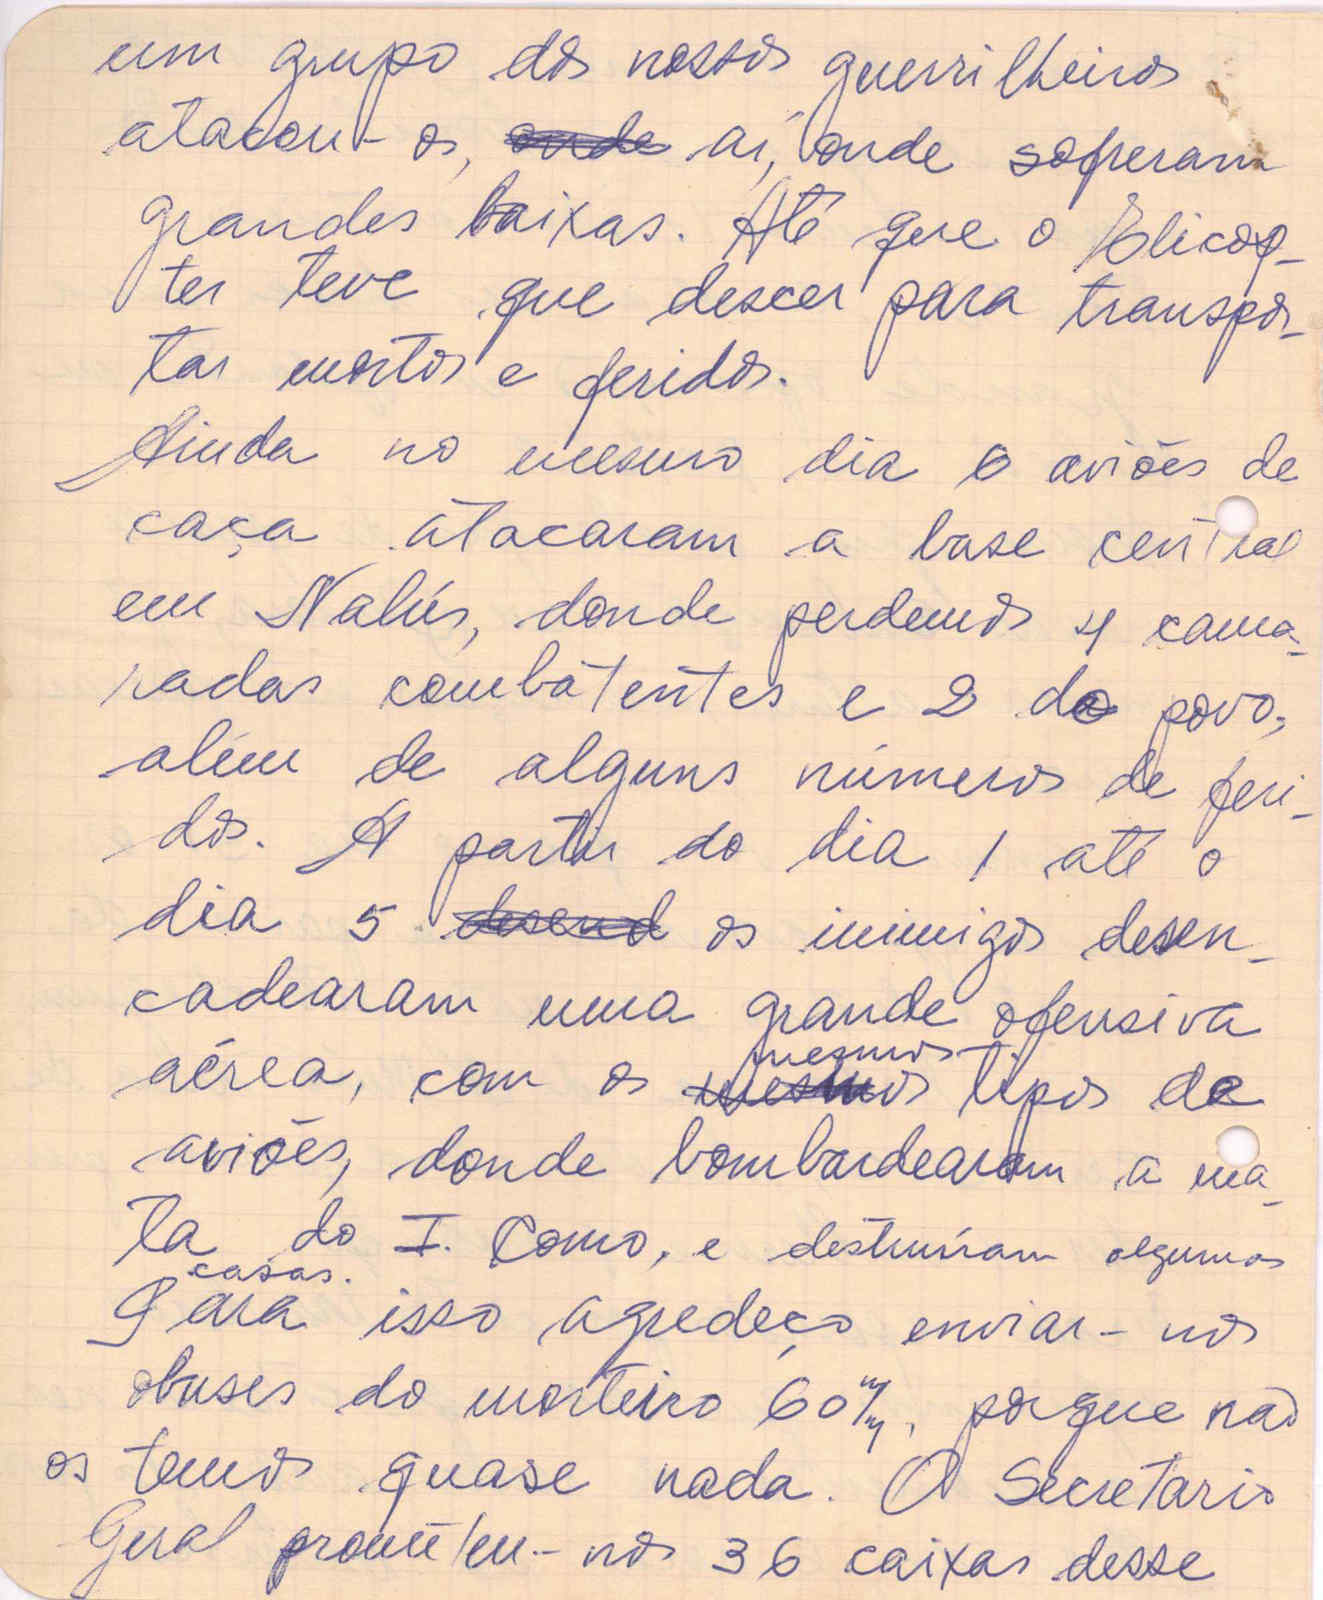 um grupo dos nossos guerrilheiros
atacou-os, onde aí, onde sofreram
grandes baixas. Até que o Elicop-
ter teve que descer para transpor-
tar mortos e feridos.
Ainda no mesmo dia 6 aviões de
caça atacaram a base central
em Nalús, donde perdemos 4 cama-
radas combatentes e 2 do povo,
além de alguns números de feri-
dos. A partir do dia 1 até o
dia 5 desend os inimigos desen-
cadearam uma grande ofensiva
aérea, com os mesmos mesmos tipos de
aviões, donde bombardearam a ma-
ta do I. Como, e destruíram algumas
casas.
Para isso agredeço enviar-nos
obuses do morteiro 60 m/m, porque não
os temos quase nada. O Secretario
Geral prometeu-nos 36 caixas desse